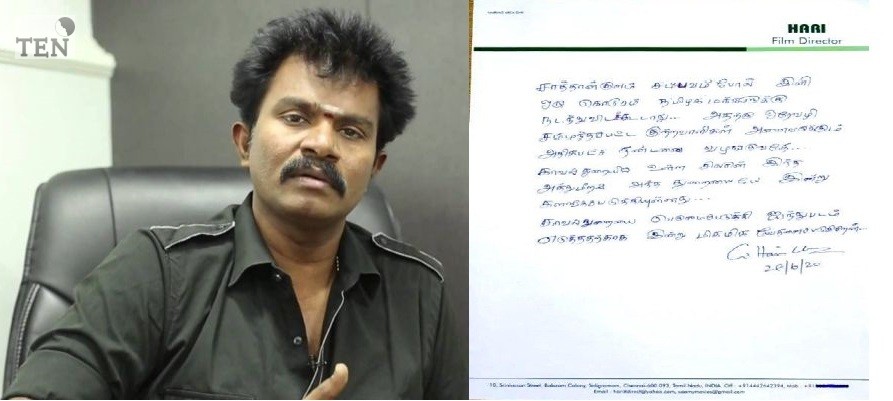 TEN
HARI
Film Director
சாத்தான்குளம் சம்பவம் போல் இனி
ஒரு கொடூரம் தமிழக மக்களுக்கு
நடந்துவிடக்கூடாது... அதற்கு ஒரேவழி
சம்பந்தப்பட்ட குற்றவாளிகள் அனைவருக்கும்
அதிகபட்ச தண்டனை வழங்குவதே...
காவல்துறையில் உள்ள சிலரின் இந்த
அத்துமீறல் அந்த துறையையே இன்று
களங்கப்படுத்தியுள்ளது...
காவல்துறையை பெருமைப்படுத்தி ஐந்துபடம்
எடுத்ததற்காக இன்று மிகமிக வேதனைப்படுகிறேன்...
Hari
28/6/20
Srinivasan Street, Colony, Saligramam, Chennai-600 093, Tamil Nadu, INDIA. Off : +914442642394, Mob : +91
Email :